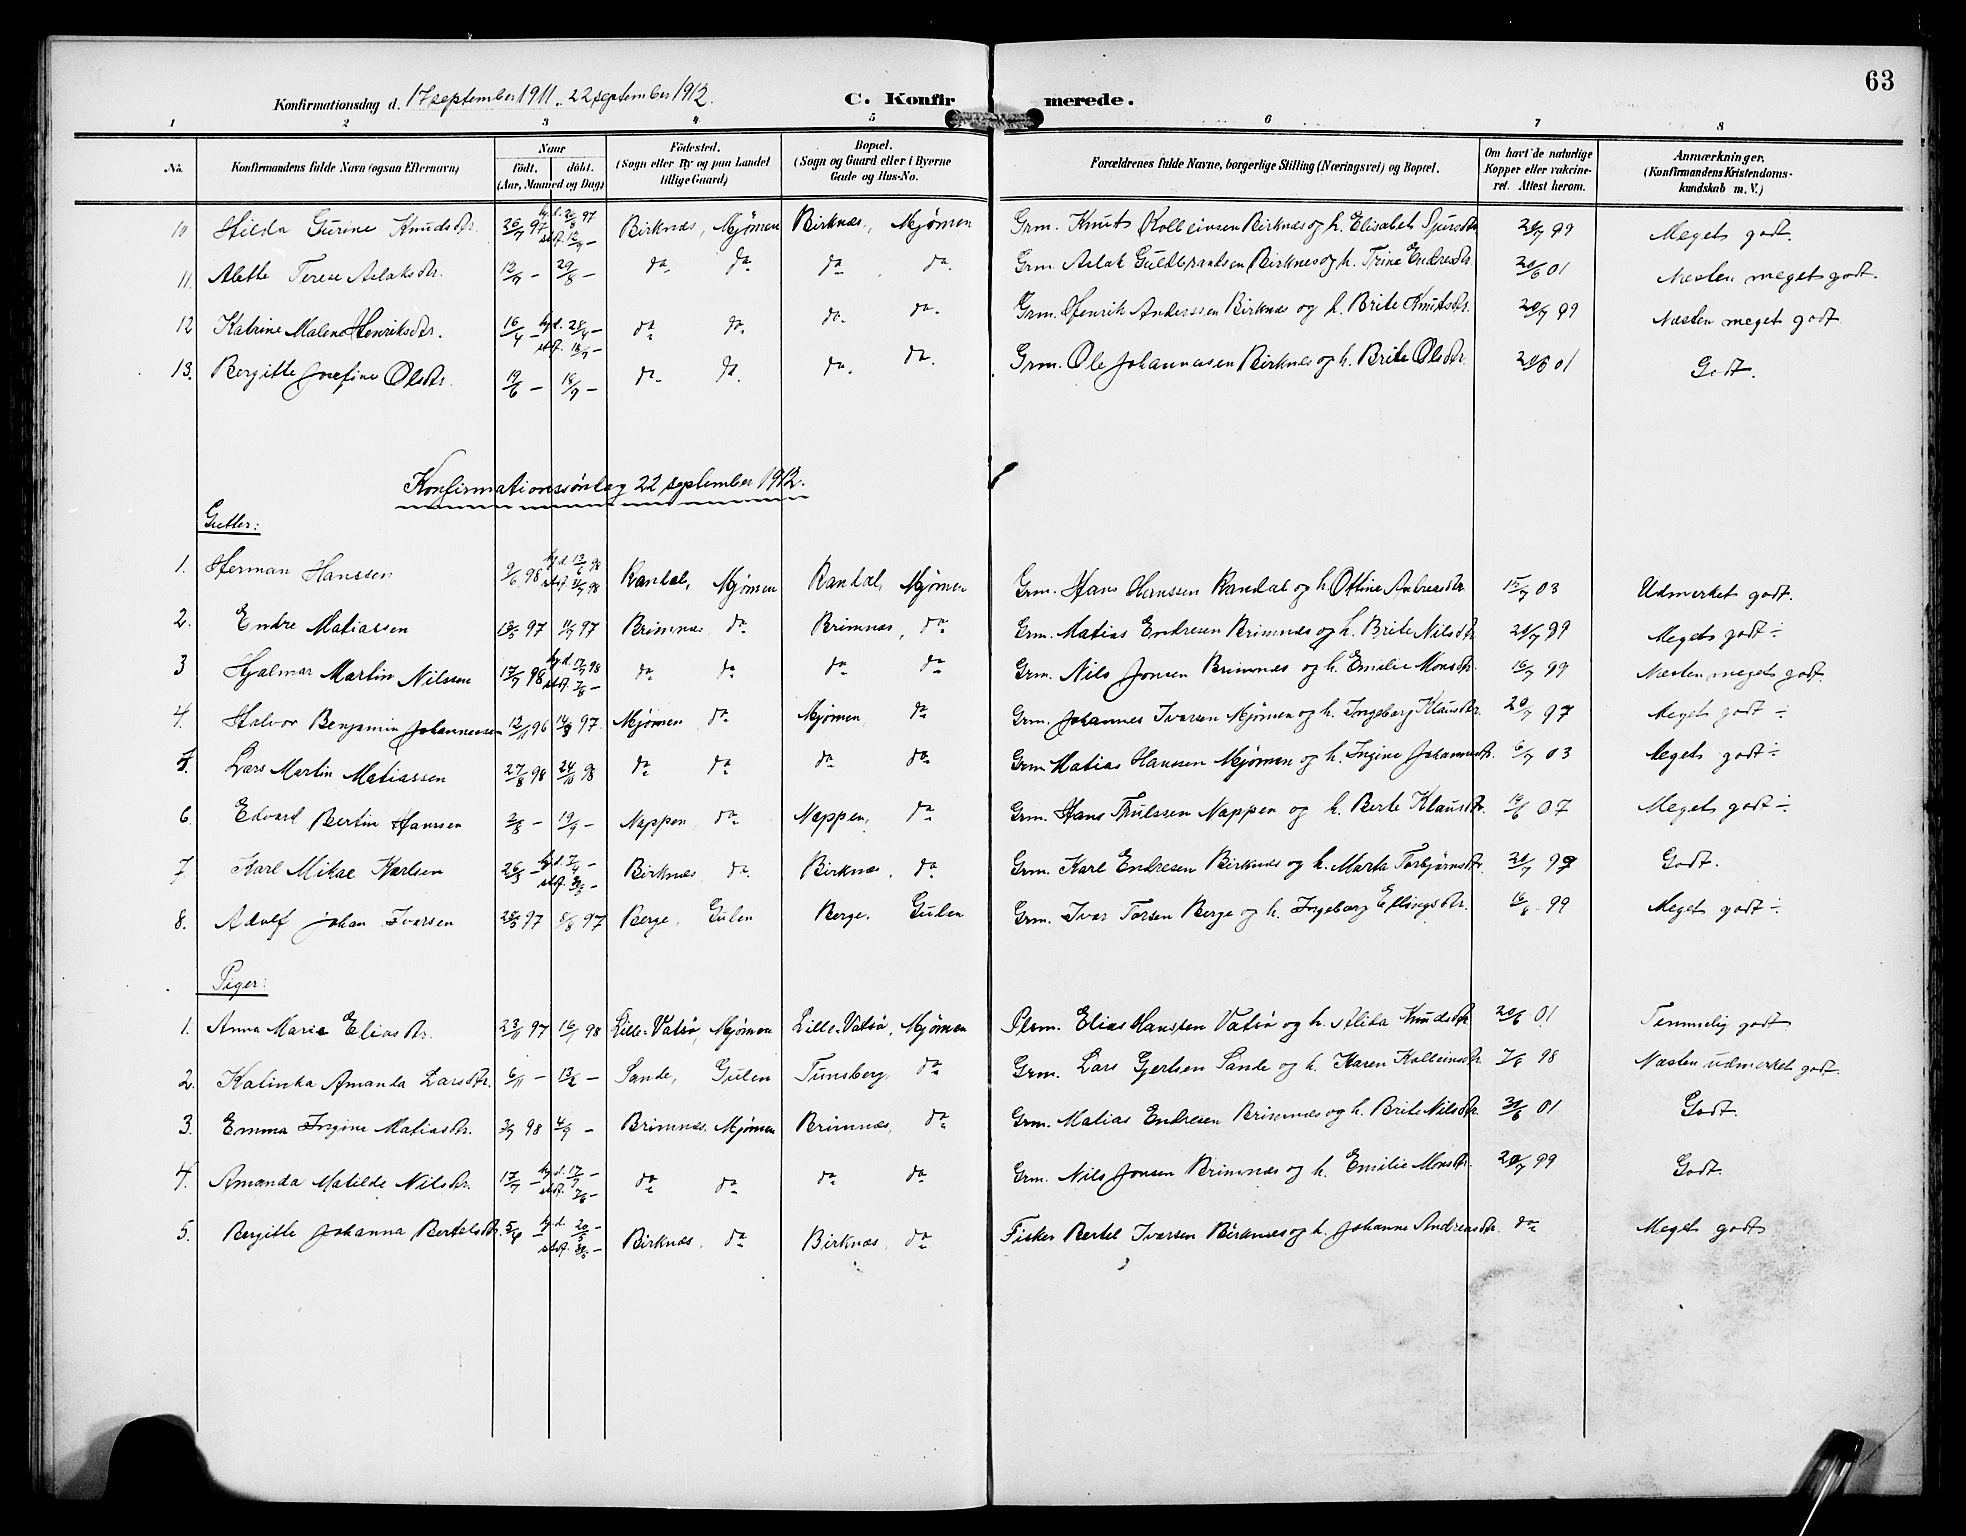 63
Konfirmationsdag d. 17 september 1911. 22 september 1912. C. Konfirmerede.
1 2 3 4 5 6 7 8
No. Konfirmandens fulde Navn (ogsaa Efternavn) Naar født. døbt. (Aar, Maaned og Dag) Födested. (Sogn eller By og paa Landet tillige Gaard) Bopæl. (Sogn og Gaard eller i Byerne Gade og Hus-No. Forældrenes fulde Navne, borgerlige Stilling (Næringsvei) og Bopæl. Om havt de naturlige Kopper eller vakcineret. Attest herom. Anmærkninger. (Konfirmandens Kristendomskundskab m. V.)
10 Hilda Gurine Knudsdtr. Birknæs, Mjömen Birknæs, Mjømen Grm. Knut Kolbeinsen Birknæs og h. Elisabet 99 Meget godt.
11. Alette Terese Aslaksdtr. 12/7 – 29/8 – do. do. do. do. Grm. Aslak Guldbrandsen Birknæs og h. Trine Endresdtr. 20/6 01 Næsten meget godt.
12 Katrine Malene Henriksdtr. 16/4 – do do. do. do. Grm. Henrik Anderssen Birknæs og h. Brite Knutsdtr. 20/7 99 Næsten meget godt.
13. Bergitte Josefine Olsdtr. 19/6 – 18/9 – do do. do. do. Grm. Ole Johannessen Birknæs og h. Brite Olsdtr. 20/6 01 Godt.
Konfirmationssöndag 22 september 1912.
Gutter:
1. Herman Hanssen 9/6 98 Randal, Mjømen Randal, Mjømen Grm. Hans Hanssen Randal og h. Ottine Andreasdtr. 15/7 03 Udmerket godt.
2. Endre Matiassen 97 11/7 97 Brimnæs, do Brimnæs, do Grm. Matias Endresen Brimnæs og h. Brite Nilsdtr. 20/7 99 Meget godt ÷
3 Hjalmar Martin Nilssen 17/7 98 hjd. 17/7 98 do do do do Grm. Nils Jonsen Brimnæs og h. Emilie Monsdtr. 99 Næsten meget godt.
4. Halvor Benjamin Johannessen 12/11 96 14/3 97 Mjømen do Mjømen, do Grm. Johannes Ivarsen Mjømen og h. Ingeborg Klausdtr. 20/7 97 Meget godt ÷
5. Lars Martin Matiassen 27/8 98 24/10 98 do do do do Grm. Matias Hanssen Mjømen og h. Ingine Johannesdtr. 6/7 03 Meget godt ÷
6. Edvard Bertin Hanssen 2/8 – 19/9 – Nappen, do Nappen, do Grm. Hans Trulssen Nappen og h. Berte Klausdtr. 07 Meget godt ÷
7 Karl Mikal Karlsen Birknæs, do Birknæs, do Grm. Karl Endresen Birknæs og h. Marta Torbjørnsdtr. 20/7 99 Godt.
8. Adolf Johan Ivarsen 97 8/8 97 Berge, Gulen Berge, Gulen Grm. Ivar Torsen Berge og h. Ingeborg Ellingsdtr. 99 Meget godt ÷
Piger:
1. Anna Marie Eliasdtr. 23/11 97 16/1 98 Lille-Vatsö, Mjømen Lille-Vatsø, Mjømen Plsm. Elias Hanssen Vatsø og h. Alida Knudsdtr 20/6 01 Temmelig godt
2. Kalinka Amanda Larsdtr. 6/11 – 13/2 – Sande, Gulen Tunsberg, do Grm. Lars Gjertsen Sande og h. Karen Kolbeinsdtr. 98 Næsten udmerket godt.
3. Emma Ingine Matiasdtr. 98 4/9 – Brimnæs, Mjømen Brimnæs, do Grm. Matias Endresen Brimnæs og h. Brite Nilsdtr. 01 Godt.
4. Amanda Matilde Nilsdtr. 17/7 – hjd. 17/7 – do do do do Grm. Nils Jonsen Brimnæs og h. Emilie Monsdtr. 20/7 99 Godt.
5. Bergitte Johanna Bertelsdtr. 5/4 – Birknæs, do Birknæs, do Fisker Bertel Ivarsen Birknæs og h. Johanne Andreasdtr. do Meget godt